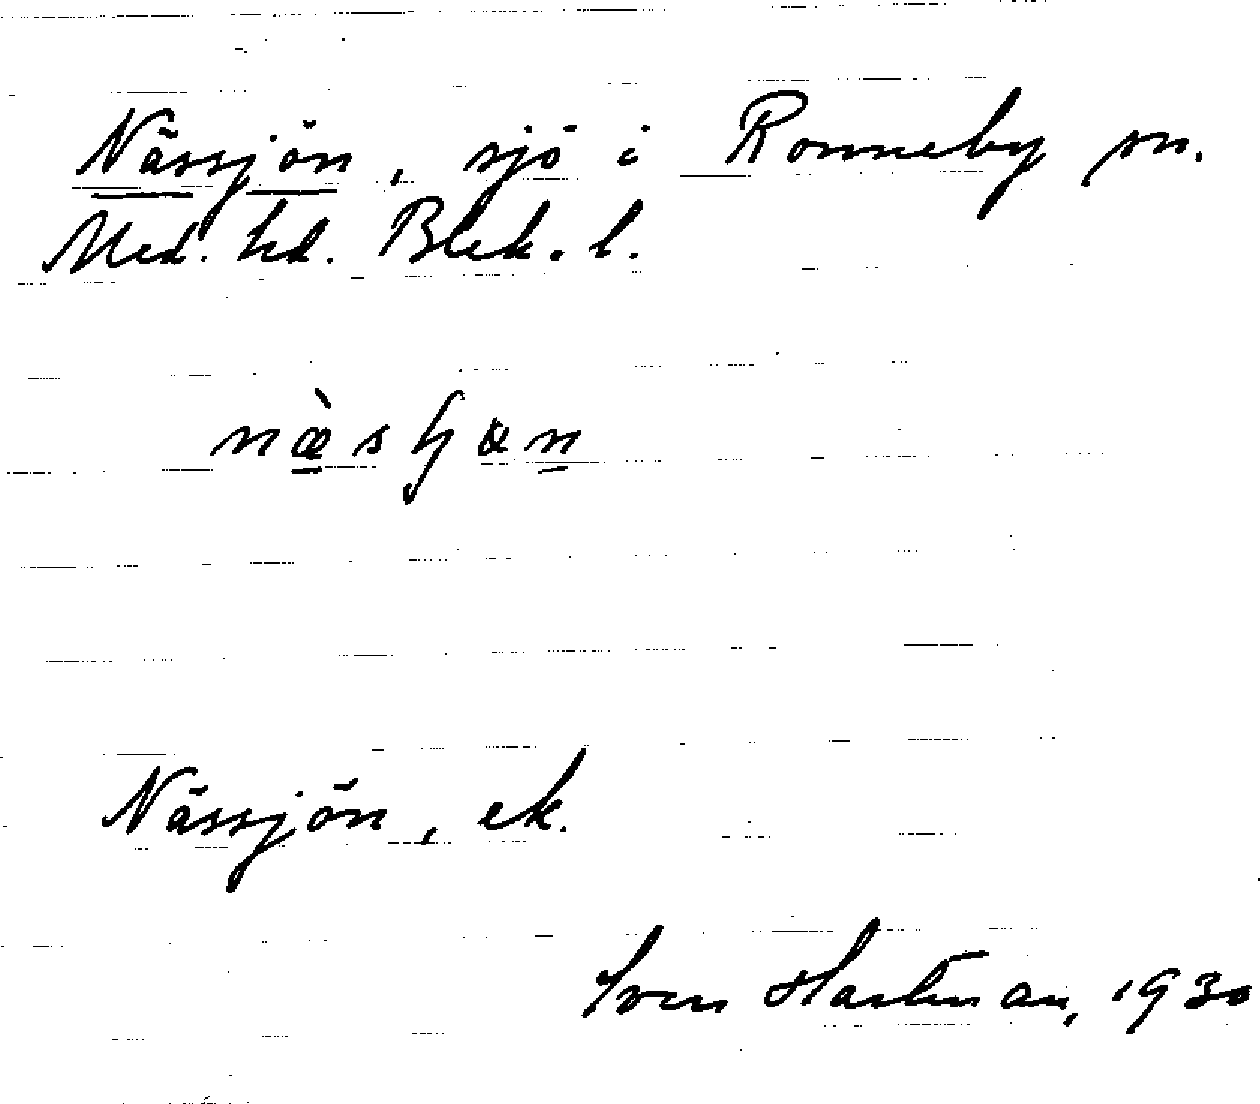 Nässjön, sjö i Ronneby sn.
Med. hd. Blek. l.
Nässjön, ek.
Sven Hartman, 1930